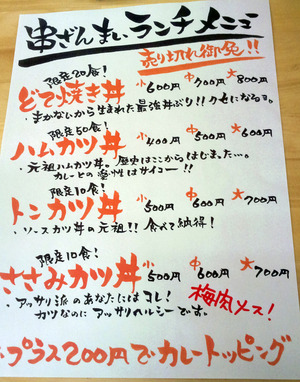 串ざんまいランチメニュー
売り切れ御免!!
限定20食!
どて焼き丼 小600円 中700円 大800円
・まかないから生まれた最強丼ぶり!!クセになるす。
限定50食!
ハムカツ丼 小400円 中500円 大600円
・元祖ハムカツ丼。歴史はここからはじまった…。
カレーとの愛性はサイコー!!
限定10食!
トンカツ丼 小500円 中600円 大700円
・ソースカツ丼の元祖!!食べて納得!
限定10食!
ささみカツ丼 小500円 中600円 大700円
・アッサリ派のあなたにはコレ!
カツなのにアッサリヘルシーです。
梅肉メス!
・プラス200円でカレートッピング